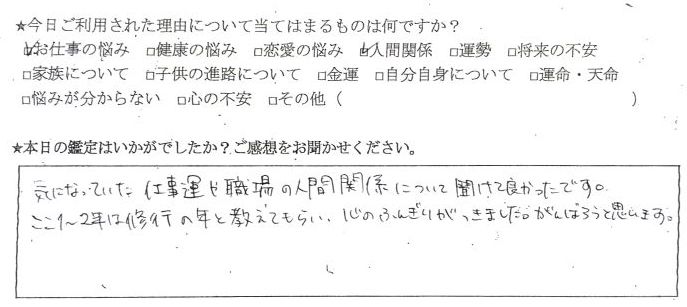 ★今日ご利用された理由について当てはまるものは何ですか？
☑お仕事の悩み □健康の悩み □恋愛の悩み ☑人間関係 □運勢 □将来の不安
□家族について □子供の進路について □金運 □自分自身について □運命・天命
□悩みが分からない □心の不安 □その他（ ）
★本日の鑑定はいかがでしたか？ご感想をお聞かせください。
気になっていた 仕事運や職場の人間関係について聞けて良かったです。
ここ1〜2年は修行の年と教えてもらい、心のふんぎりがつきました。がんばろうと思います。